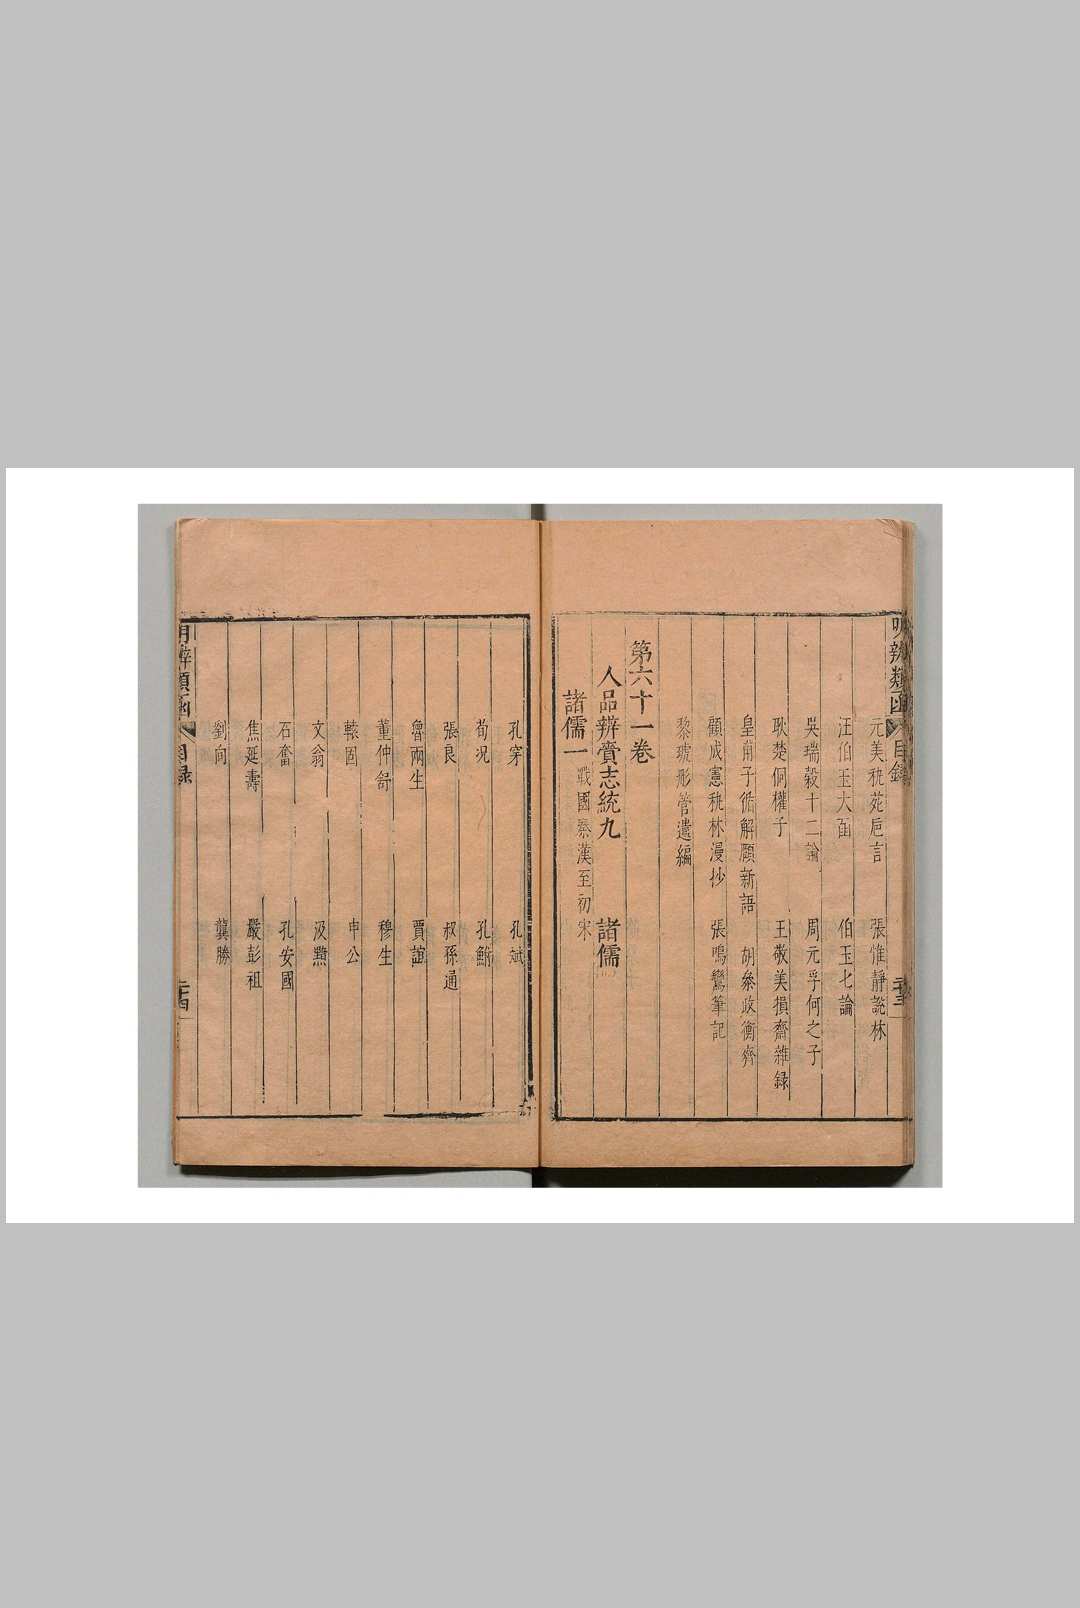 明辨類函 目錄 二十三
元美秇苑巵言 張惟靜說林
汪伯玉大函 伯玉七論
吳瑞榖十二論 周元孚何之子
耿楚侗權子 王敬美損齋雜録
皇甫子循解頤新語 胡叅政衡齊
顧成憲秇林漫抄 張鳴鸞筆記
黎琥彤管遺編
第六十一卷
人品辨賞志統九 諸儒
諸儒一 戰國秦漢至初宋
孔穿 孔斌
荀況 孔鮒
張良 叔孫通
魯兩生 賈誼
董仲舒 穆生
轅固 申公
文翁 汲黯
石奮 孔安國
焦延壽 嚴彭祖
劉向 龔勝
明辨類函 目録 二十四